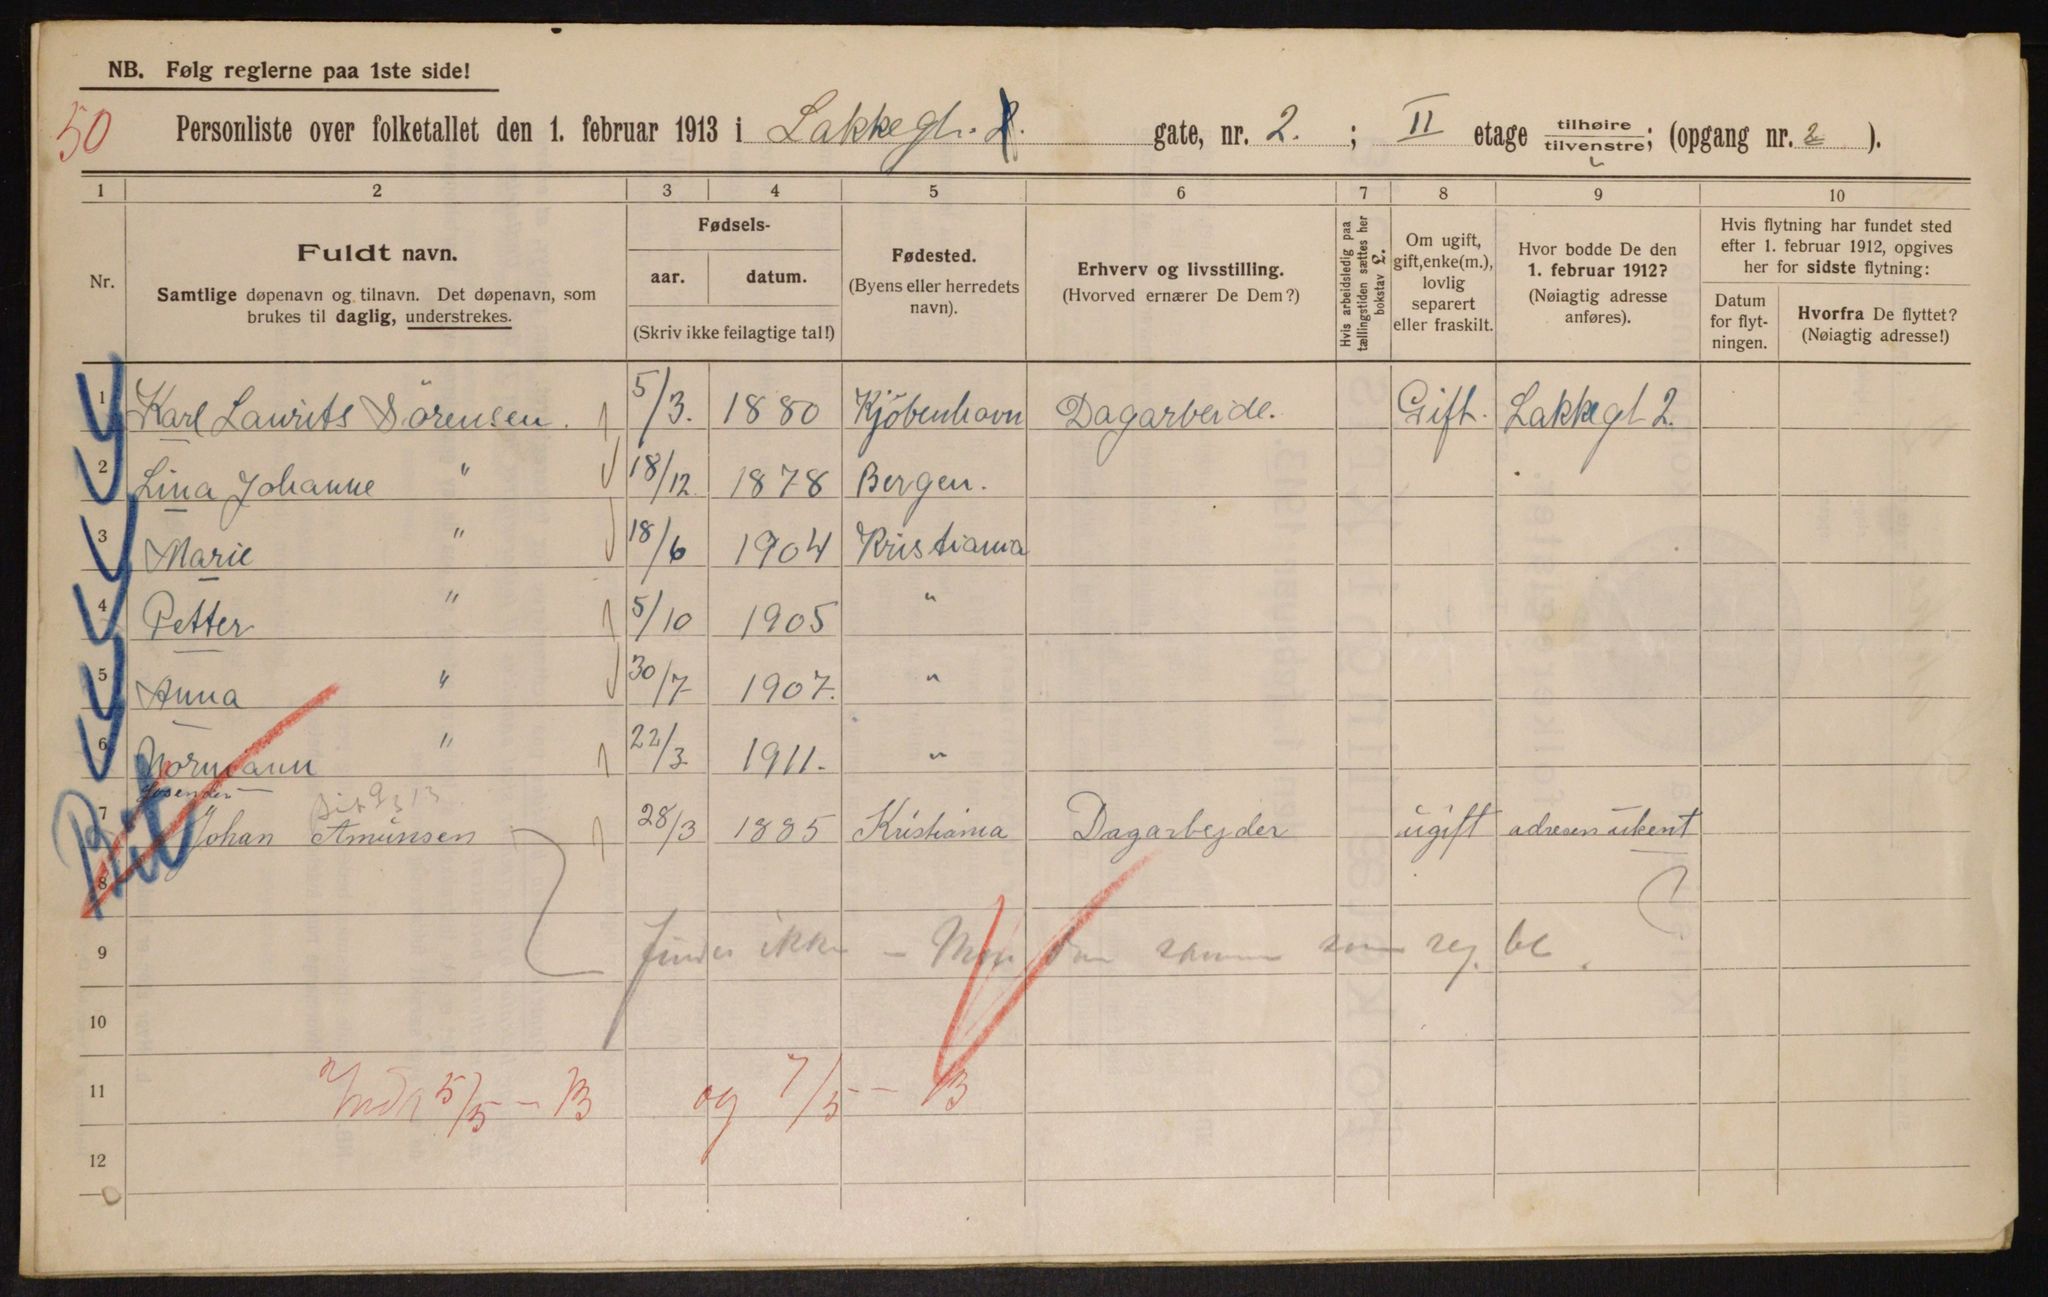 NB. Følg reglerne paa 1ste side!
50
Personliste over folketallet den 1. februar 1913 i Lakkegt. gate, nr. 2. ; II etage tilhøire/tilvenstre; (opgang nr. 2 ).
1 2 3 4 5 6 7 8 9 10
Nr.
Fuldt navn.
Samtlige døpenavn og tilnavn. Det døpenavn, som
brukes til daglig, understrekes.
Fødsels-
aar. datum.
(Skriv ikke feilagtige tal!)
Fødested.
(Byens eller herredets
navn).
Erhverv og livsstilling.
(Hvorved ernærer De Dem?)
Hvis arbeidsledig paa
tællingstiden sættes her
bokstav L.
Om ugift,
gift, enke(m.),
lovlig
separert
eller fraskilt.
Hvor bodde De den
1. februar 1912?
(Nøiagtig adresse
anføres).
Hvis flytning har fundet sted
efter 1. februar 1912, opgives
her for sidste flytning:
Datum
for flyt-
ningen.
Hvorfra De flyttet?
(Nøiagtig adresse!)
1 Karl Laurits Sörensen. 5/3. 1880 Kjöbenhavn Dagarbeide. Gift. Lakkegt 2.
2 Lina Johanne " 18/12. 1878 Bergen.
3 Marie " 18/6 1904 Kristiania
4 Petter " 5/10 1905 "
5 Anna " 30/7 1907. "
6 Normann " 22/3 1911. "
7 Johan Amunsen 28/3 1885 Kristiania Dagarbejder ugift adresen ukent
8
9 findes ikke – som reg.
10
11 5/5 – 13 og 7/5 – 13
12